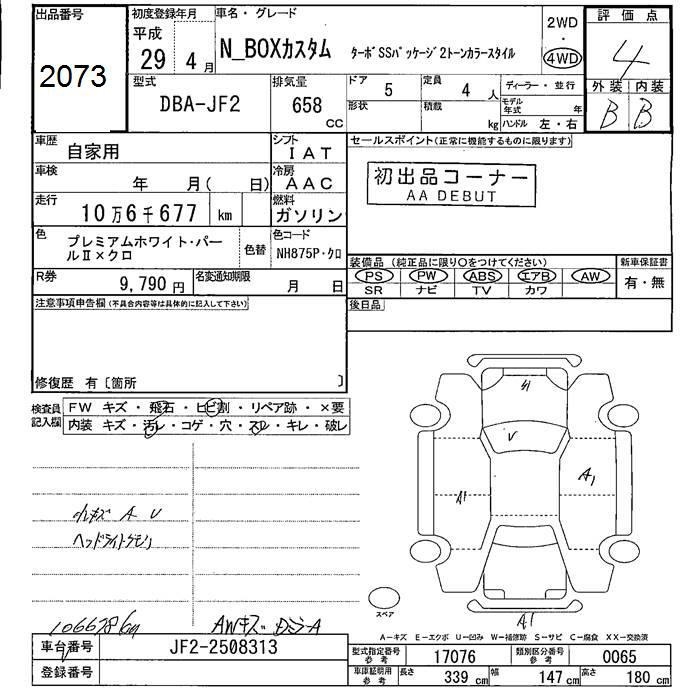 出品番号
2073
初度登録年月
平成
29 4月
車名・グレード
N_BOXカスタム ターボSSパッケージ2トーンカラースタイル
2WD
・
4WD
評価点
4
外装 内装
B B
型式
DBA-JF2
排気量
658
CC
ドア
5
定員
4 人
形状
積載
kg
ディーラー・並行
モデル年式 年
ハンドル 左・右
車歴
自家用
シフト
IAT
車検
年 月( 日)
冷房
AAC
走行
10万6千677 km
燃料
ガソリン
色
プレミアムホワイト・パールⅡ×クロ
色替
色コード
NH875P・クロ
R券
9,790円
名変通知期限
月 日
セールスポイント(正常に機能するものに限ります)
初出品コーナー
AA DEBUT
装備品(純正品に限り○をつけてください)
PS PW ABS エアB AW
SR ナビ TV カワ
新車保証書
有・無
後日品
注意事項申告欄(不具合内容等は具体的に記入して下さい)
修復歴 有〔箇所 〕
検査員記入欄
FW キズ・飛石・ヒビ割・リペア跡・×要
内装 キズ・汚レ・コゲ・穴・スレ・キレ・破レ
小キズ A U
ヘッドライトクモリ
106678km
AWキズ
ミラーA
A1
A1
A1
スペア
A−キズ E−エクボ U−凹み W−補修跡 S−サビ C−腐食 XX−交換済
車台番号
JF2-2508313
登録番号
型式指定番号
参考
17076
類別区分番号
参考
0065
車庫証明用
参考
長さ
339 cm
幅
147 cm
高さ
180 cm